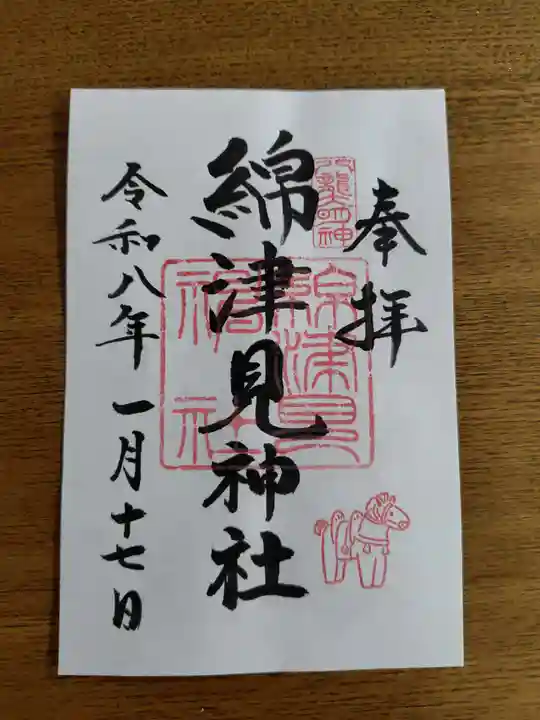 奉拝
八龍明神
綿津見神社
綿津見神社
令和八年一月十七日